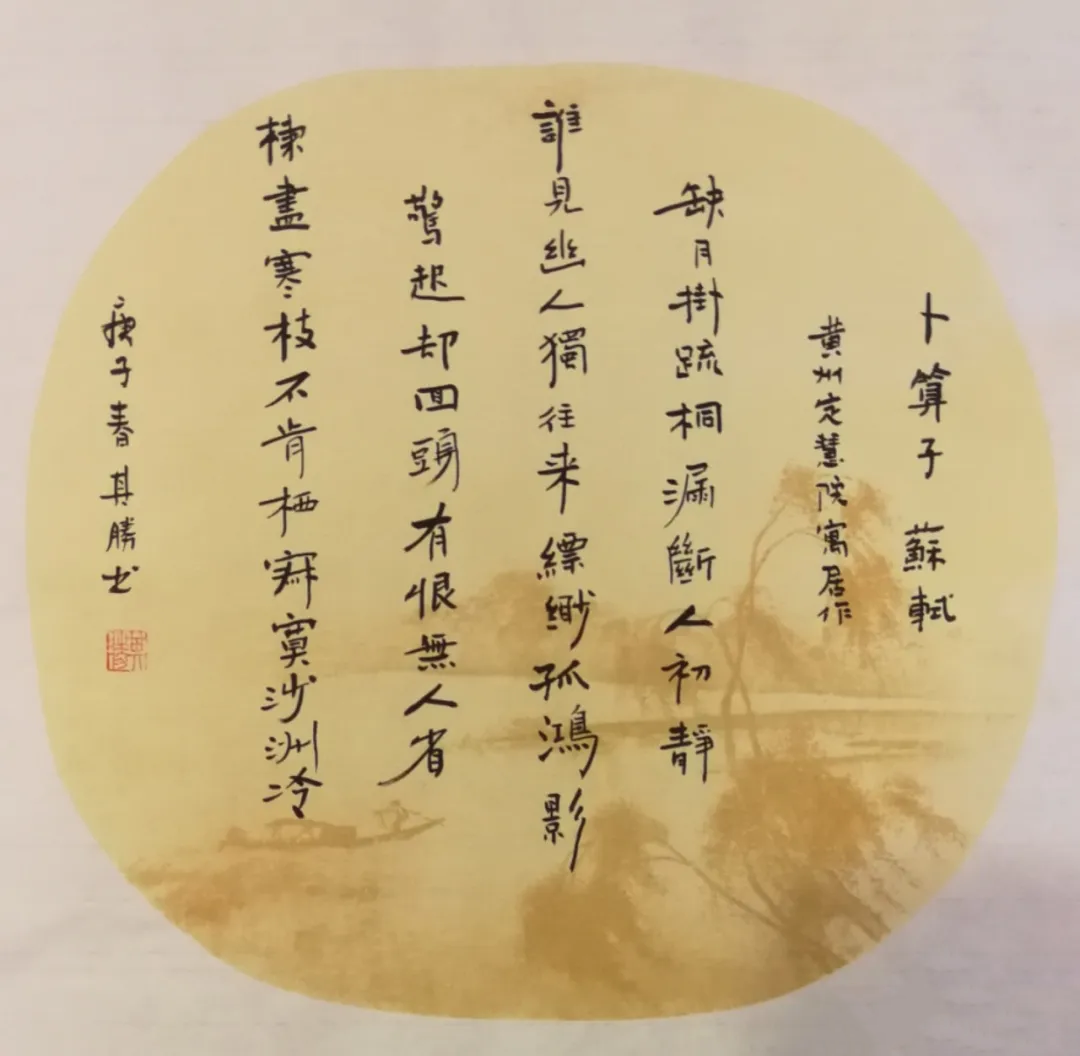 卜算子 蘇軾
黄州定慧院寓居作
缺月掛疏桐漏斷人初靜
誰見幽人獨往来缥缈孤鴻影
驚起却回頭有恨無人省
楝盡寒枝不肯栖寂寞沙洲冷
庚子春其勝书